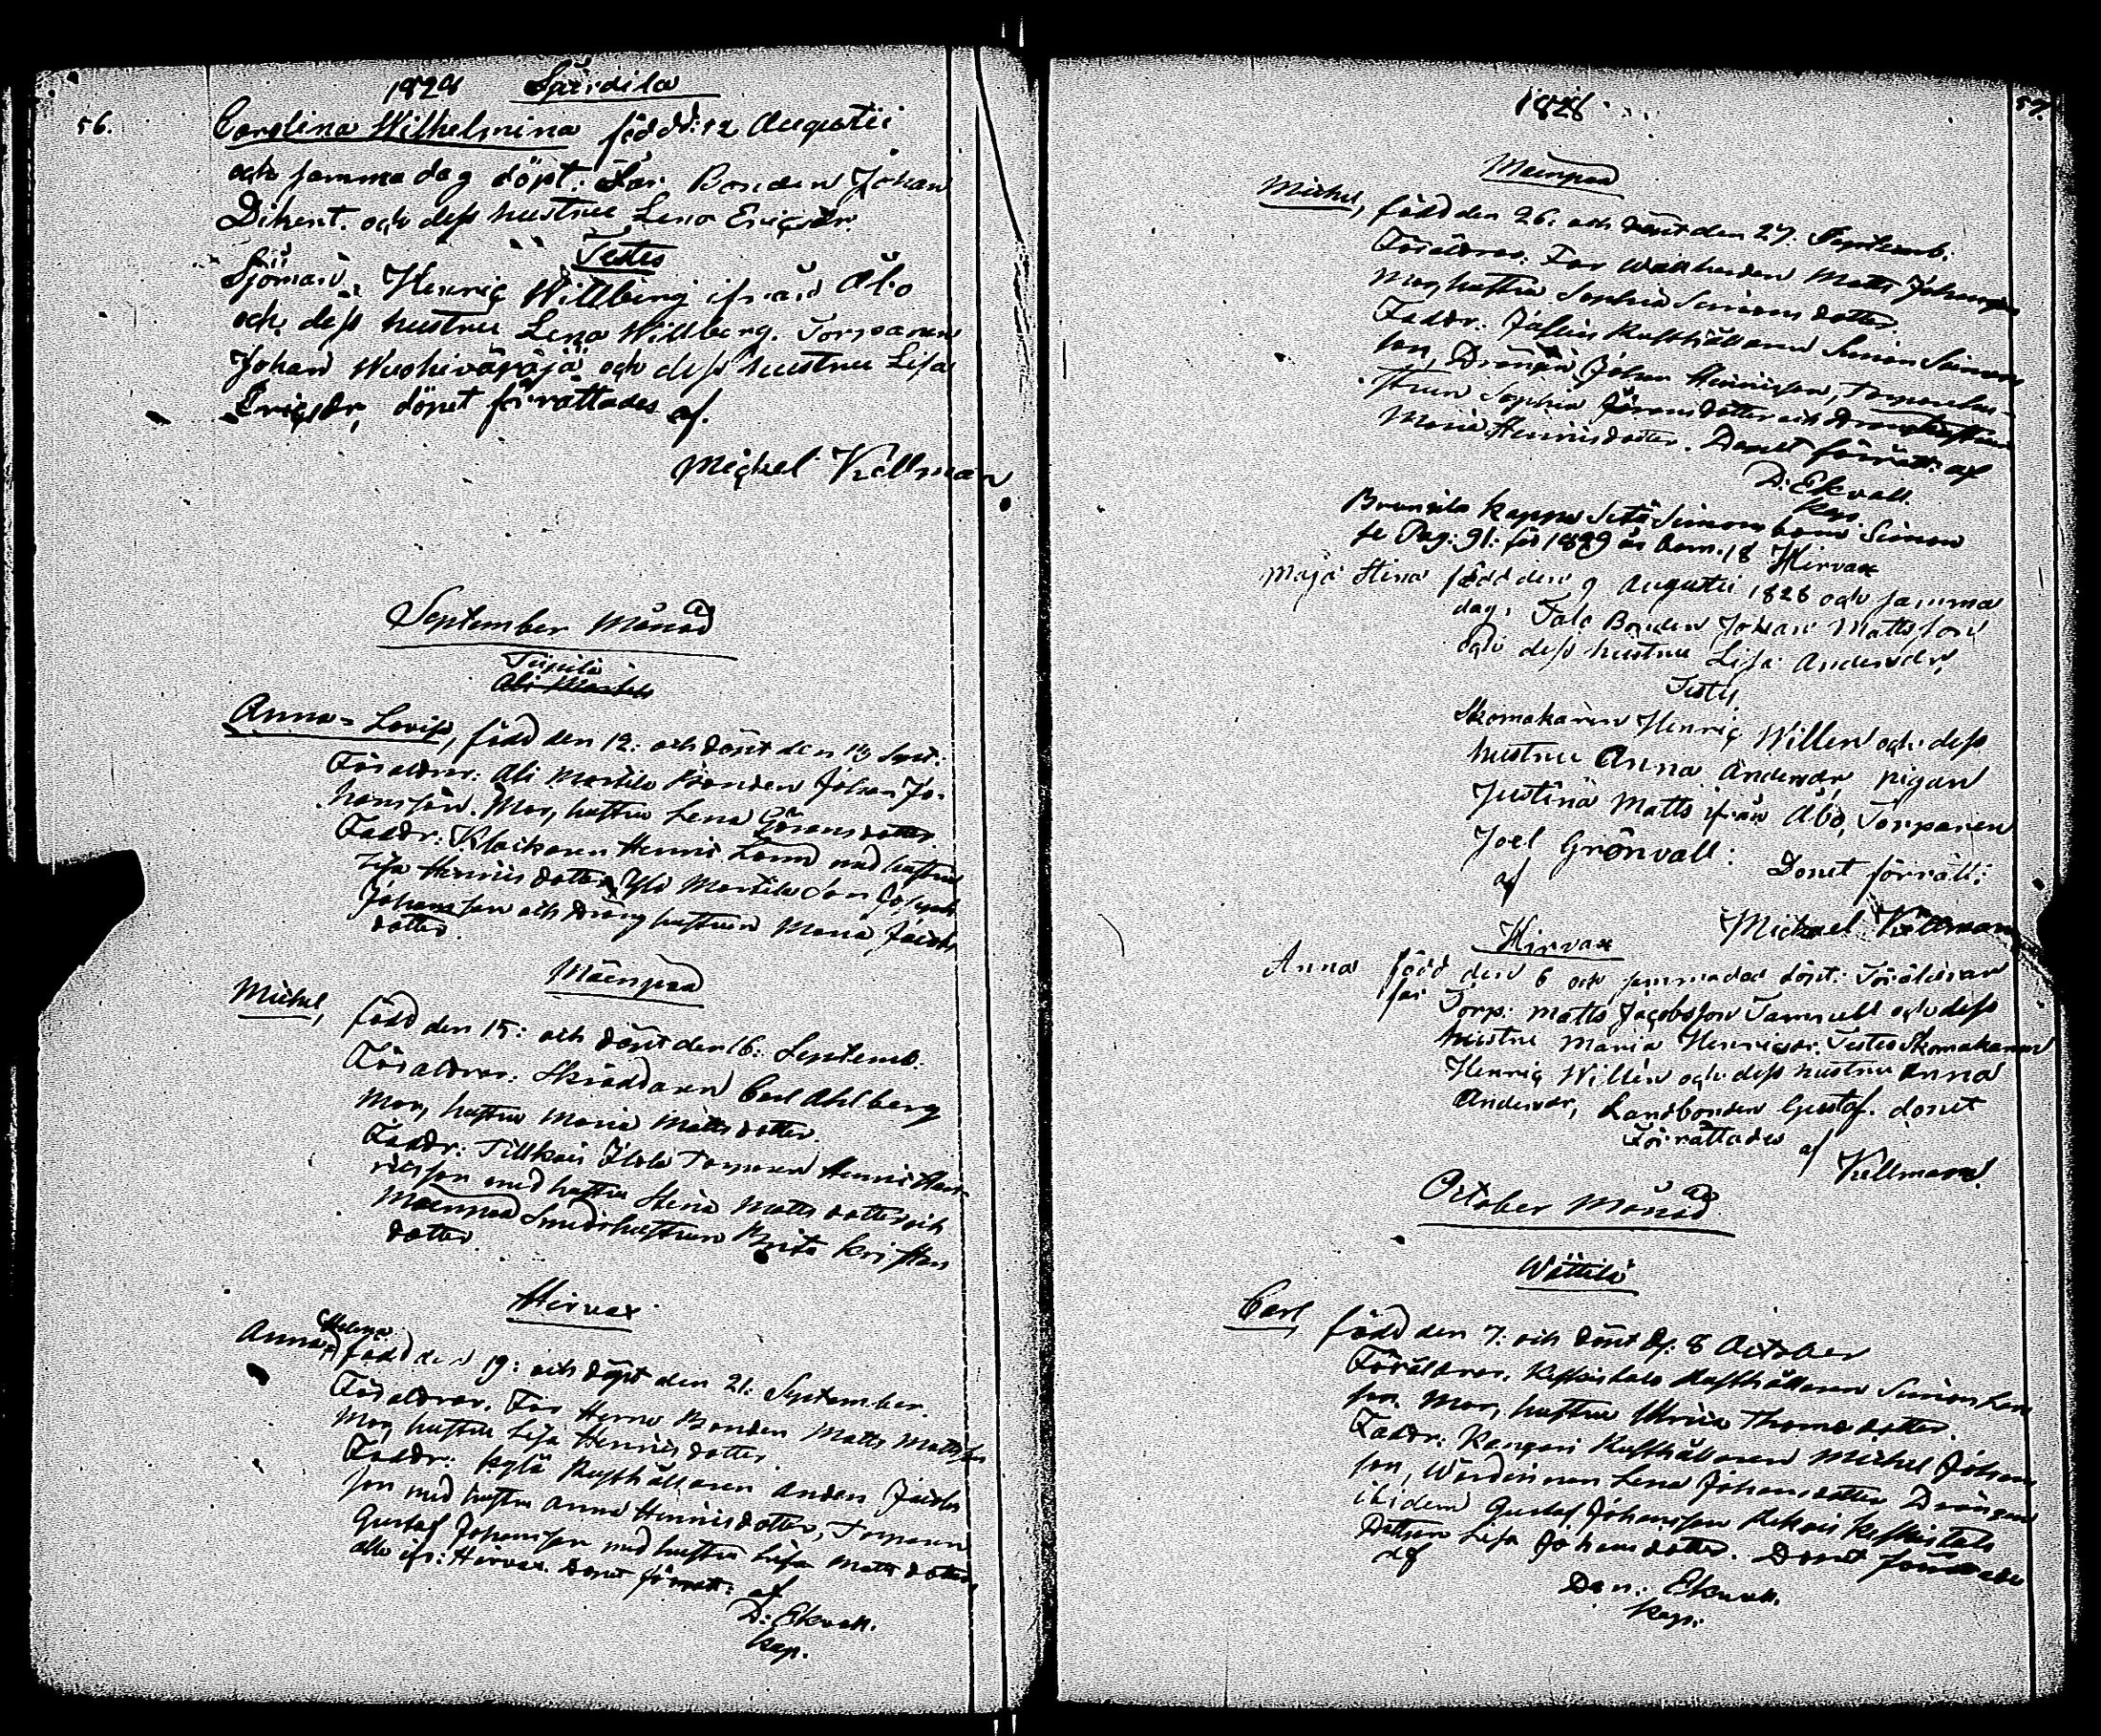 56.
1828 Spärdila
Carolina Wilhelmina född d: 12 Augustii
och samma dag döpt. För. Bonden Johan
Dikent. och dess hustru Lena Ericsdr.
Testes
Sjöman Henric Willberg ifrån Åbo
och dess hustru Lena Willberg. Torparen
Johan och dess hustru Lisa
Ericsdr, döpet förrättades af.
Michel Kellman
September Månad
Anna-Lovisa, född den 12: och döpt den 13 Sept:
Föräldrar: Ali Marttila Bonden Johan Jo-
hansson. Mor, hustru Lena Göransdotter.
Faddr: Henric Lönn med hustru
Lisa Henricsdotter, Yli Marttila Son Joseph
Johansson och Dräng hustrun Maria Jacobs
dotter.
Mäenpää
Michel, född den 15: och döpt den 16: Septemb.
Föräldrar: Skräddaren Carl Ahlberg
Mor, hustru Maria Matts dotter.
Faddr: Torparen Henric Hen-
ricsson med hustru Stina Matts dotter och
Mäenpää Smeds hustrun Brita Kristians
dotter
Hirvax
Anna Helena född den 19: och döpt den 21: September.
Föräldrar. Far Bonden Matts Mattsson
Mor, hustru Lisa Henricsdotter.
Faddr: Kylä Rusthållaren Anders Jacobs
son med hustru Anna Henricsdotter, Torparen
Gustaf Johansson med hustru Lisa Matts dotter,
alla ifr: Hirvax. Dopet förrätt: af
D: Ekvall.
Kap.
57.
1828
Mäenpää
Michel, född den 26: och döpt den 27. Septemb.
Föräldrar: Far Matts Johansson
Mor, hustru Sophia Simons dotter.
Faddr: Rusthållaren Simon Simons
son, Drängen Johan Henricsson, Torparehu-
strun Sophia Göransdotter och Dränghustrun
Maria Henricsdotter. Dopet förrätt: af
D: Ekvall.
Kap.
Simons barn Simon
se Pag: 91: för 1829 års barn. 18 Hirvax
Maja Stina född den 9 Augustii 1828 och samma
dag. Bonden Johan Mattsson
och dess hustru Lisa Andersdr,
Testes
Skomakaren Henric Willen och dess
hustru Anna Andersdr, pigan
Justina Matts ifrån Åbo, Torparen
Joel Grönvall: Dopet förrätt:
af
Michael Kellman
Hirvax
Anna född den 6 och samma dag döpt: Föräldrar
för Torp: Matts Jacobsson och dess
hustru Maria Henricsdr. Testes Skomakaren
Henric Willén och dess hustru Anna
Andersdr, Landbonden Gustaf. dopet
Förrättades af
Kellman.
October Månad
Wättilä
Carl, född den 7: och döpt d: 8 October
Föräldrar. Keskitalo Rusthållaren Simon
son. Mor, hustru Ulrica Thomasdotter.
Faddr: Kangari Rusthållaren Michel Johans
son, Värdinnan Lena Johansdotter Drängen
ibidem Gustaf Johansson Keskitalo
Dottern Lisa Johansdotter. Dopet förrättades
af
Dan: Ekvall.
Kap: